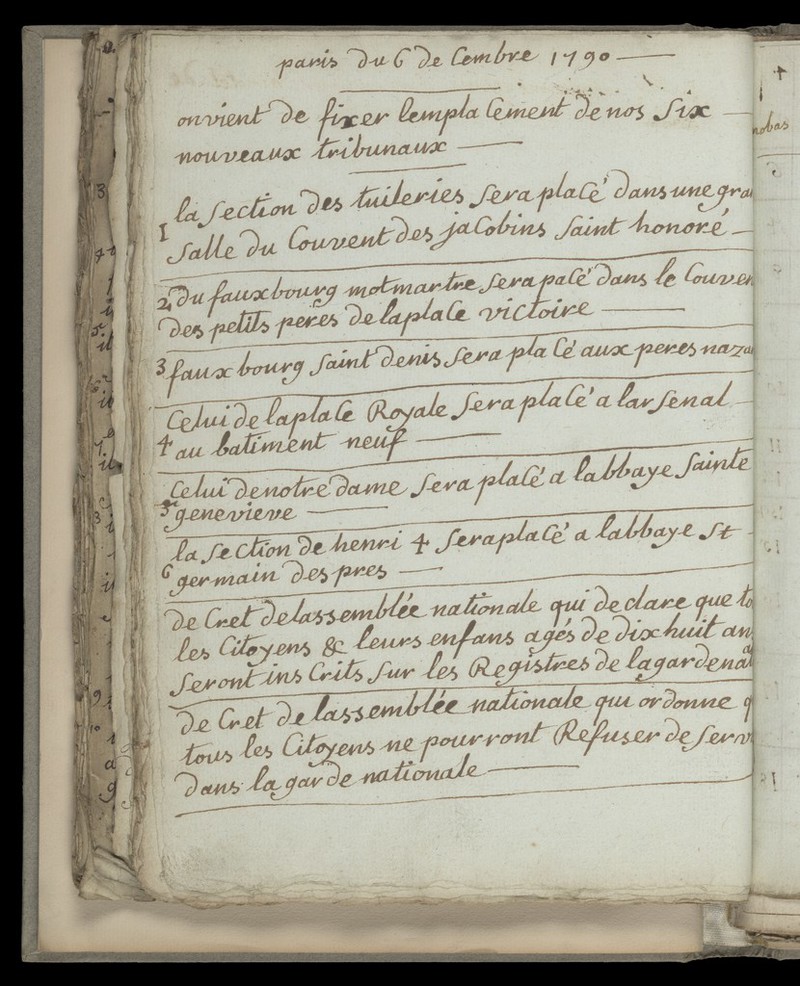 paris du 6 de Cembre 1790
on vient de fixer lempla Cement de nos Six
nouveaux tribunaux
la Section des tuileries Sera placé dans une gra
1 Salle du Couvent des jaCobins Saint honoré
2 du fauxbourg motmartre Sera palé dans le Couven
des petits peres de laplaCe victoire
3 faux bourg Saint denis Sera pla Cé aux peres naza
Celui de laplaCe Royale Sera plaCé a lar Senal
4 au batiment neuf
Celui de notre dame Sera plaCé a labbaye Sainte
5 genevieve
la Section de henri 4 Sera plaCé a labbaye St
6 germain des pres
de Cret de lassemblée nationale qui declare que to
les Citoyens & leurs enfans agés de dix huit an
Seront ins Crits Sur les Registres de la garde nat
de Cret de lassemblée nationale qui ordonne q
tous les Citoyens ne pourront Refuser de Serv
dans la garde nationale
nobas